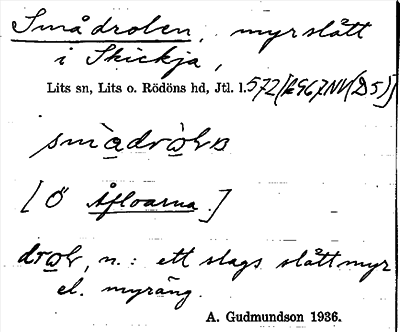 Smådrolen, myrslått
i Skickja,
Lits sn, Lits o. Rödöns hd, Jtl. l. 572 [2967NV(D5)]
[Ö Åfloarna.]
n.: ett slags slåttmyr
el. myräng.
A. Gudmundson 1936.